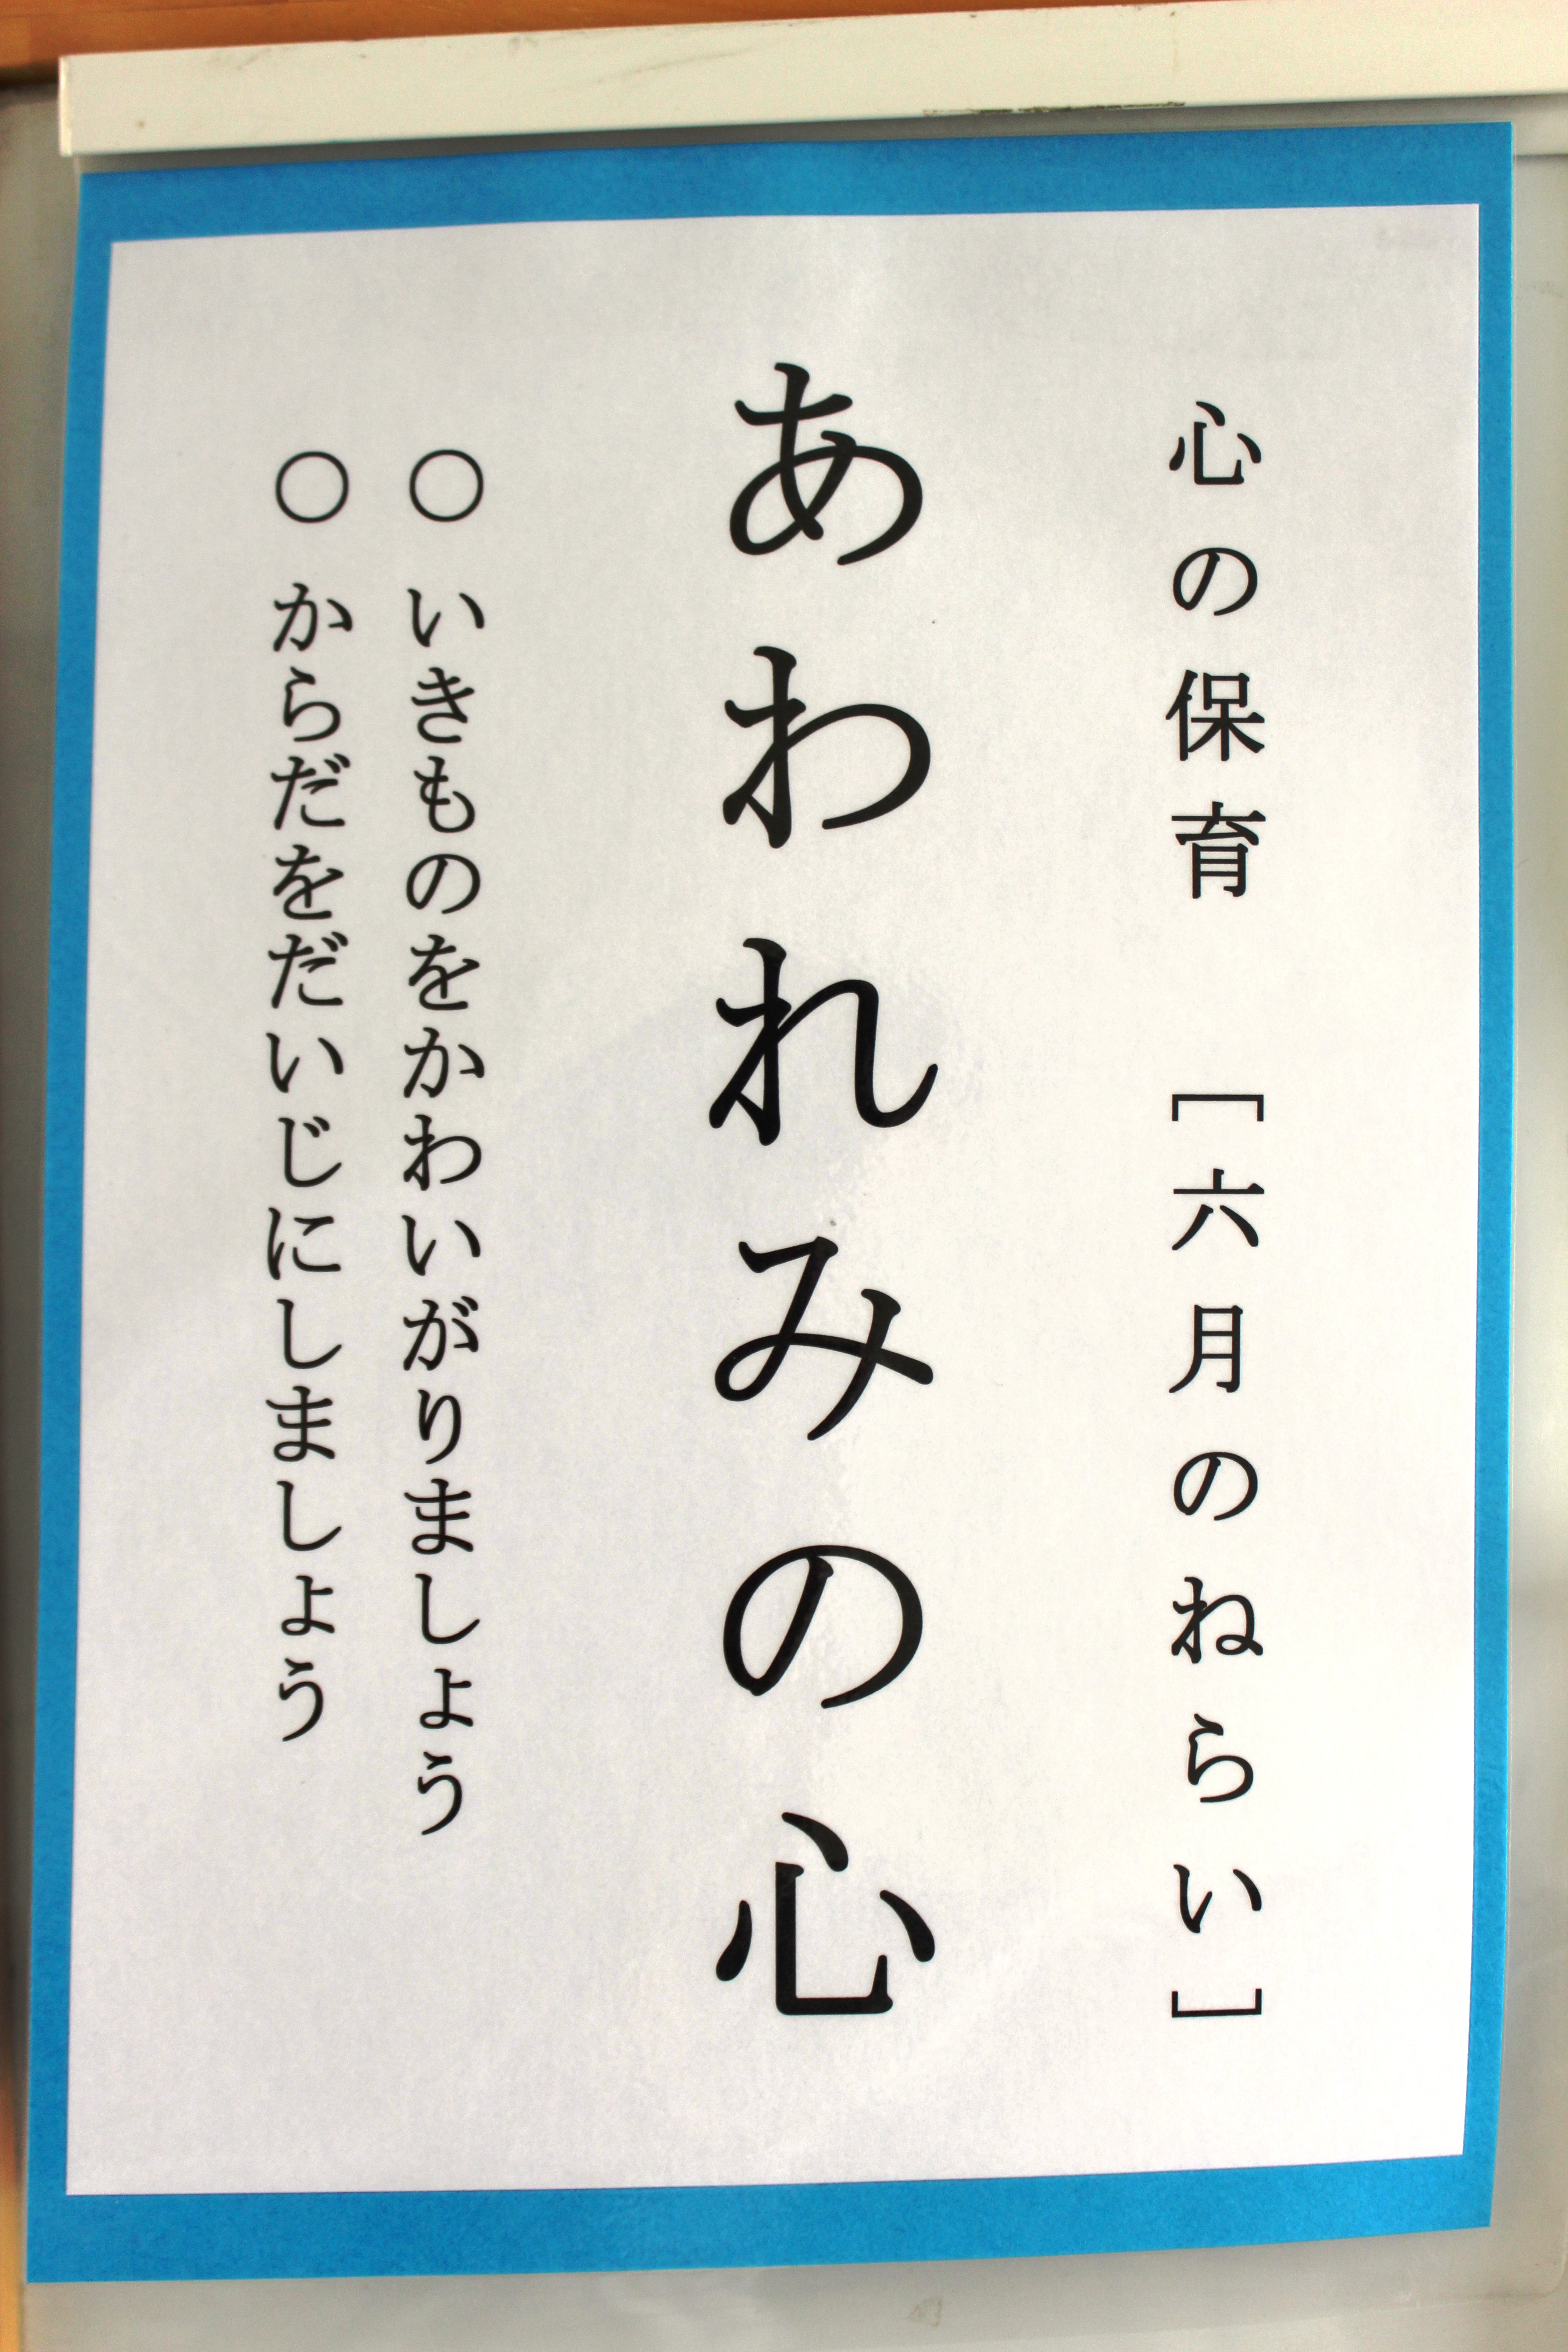 心の保育　［六月のねらい］
あわれみの心
○　いきものをかわいがりましょう
○　からだをだいじにしましょう